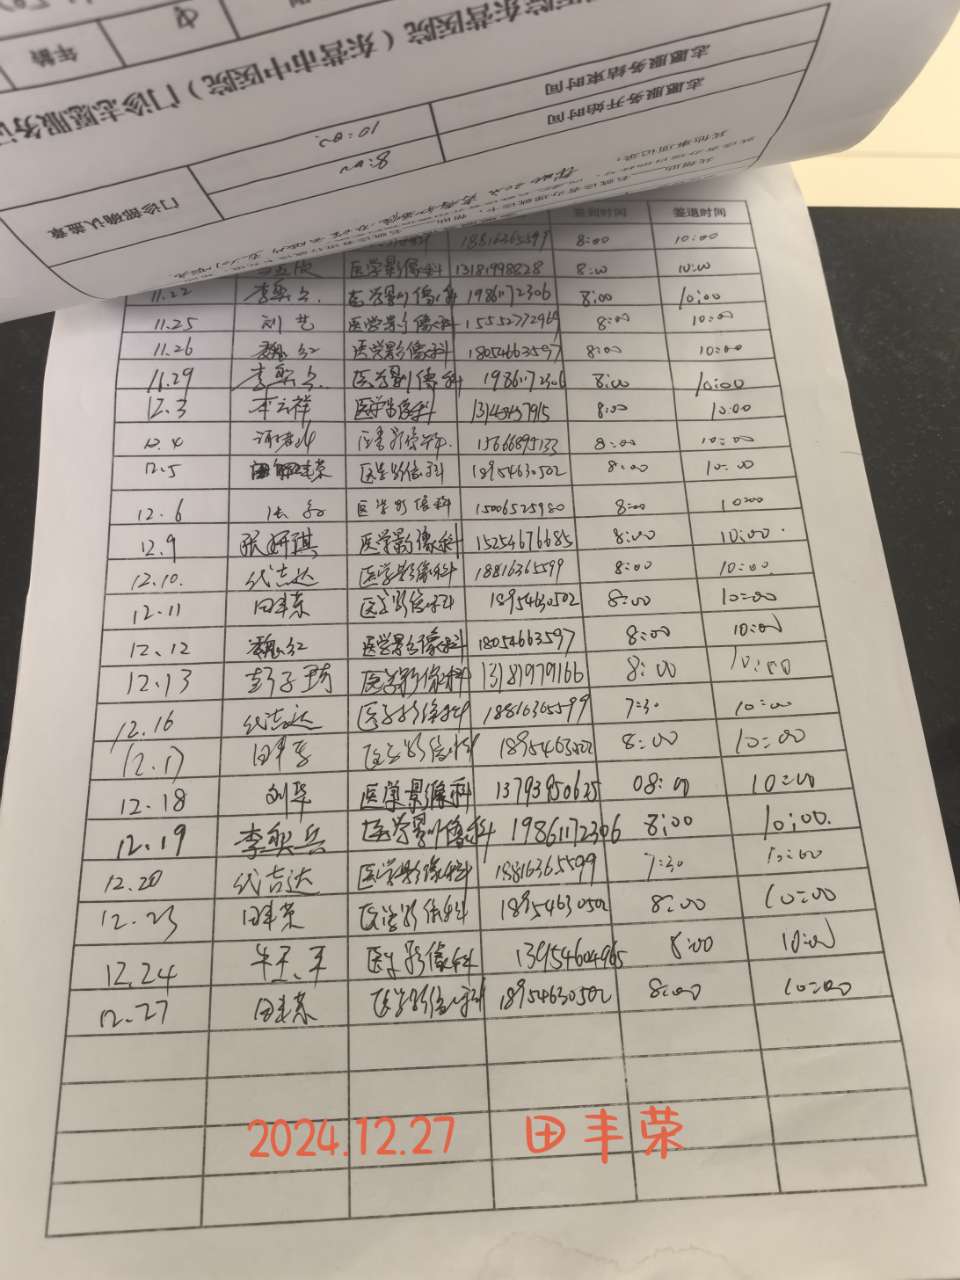 年龄
医院东营医院（东营市中医院）门诊志愿服务记
志愿服务结束时间
10:00
志愿服务开始时间
8:00
门诊部确认盖章
其他事项记录：
签到时间 签退时间
18816365599 8:00 10:00
医学影像科 13181998828 8:00 10:00
11.22 李奥兵 医学影像科 19861172306 8:00 10:00
11.25 刘艺 医学影像科 15552772969 8:00 10:00
11.26 魏红 医学影像科 18054663597 8:00 10:00
11.29 李奥兵 医学影像科 19861172306 8:00 10:00
12.3 李云祥 医学影像科 8:00 10:00
12.4 15666895133 8:00 10:00
12.5 田丰荣 医学影像科 18954630502 8:00 10:00
12.6 医学影像科 15006525980 8:00 10:00
12.9 张妍琪 医学影像科 15254676685 8:00 10:00
12.10. 代吉达 医学影像科 18816365599 8:00 10:00
12.11 田丰荣 医学影像科 18954630502 8:00 10:00
12.12 魏红 医学影像科 18054663597 8:00 10:00
12.13 彭子琦 医学影像科 13181979166 8:00 10:00
12.16 代吉达 医学影像科 18816365599 7:30 10:00
12.17 田丰荣 医学影像科 18954630502 8:00 10:00
12.18 刘华 医学影像科 13793950625 08:00 10:00
12.19 李奥兵 医学影像科 19861172306 8:00 10:00.
12.20 代吉达 医学影像科 18816365599 7:30 10:00
12.23 田丰荣 医学影像科 18954630502 8:00 10:00
12.24 医学影像科 13954604965 8:00 10:00
12.27 田丰荣 医学影像科 18954630502 8:00 10:00
2024.12.27 田丰荣